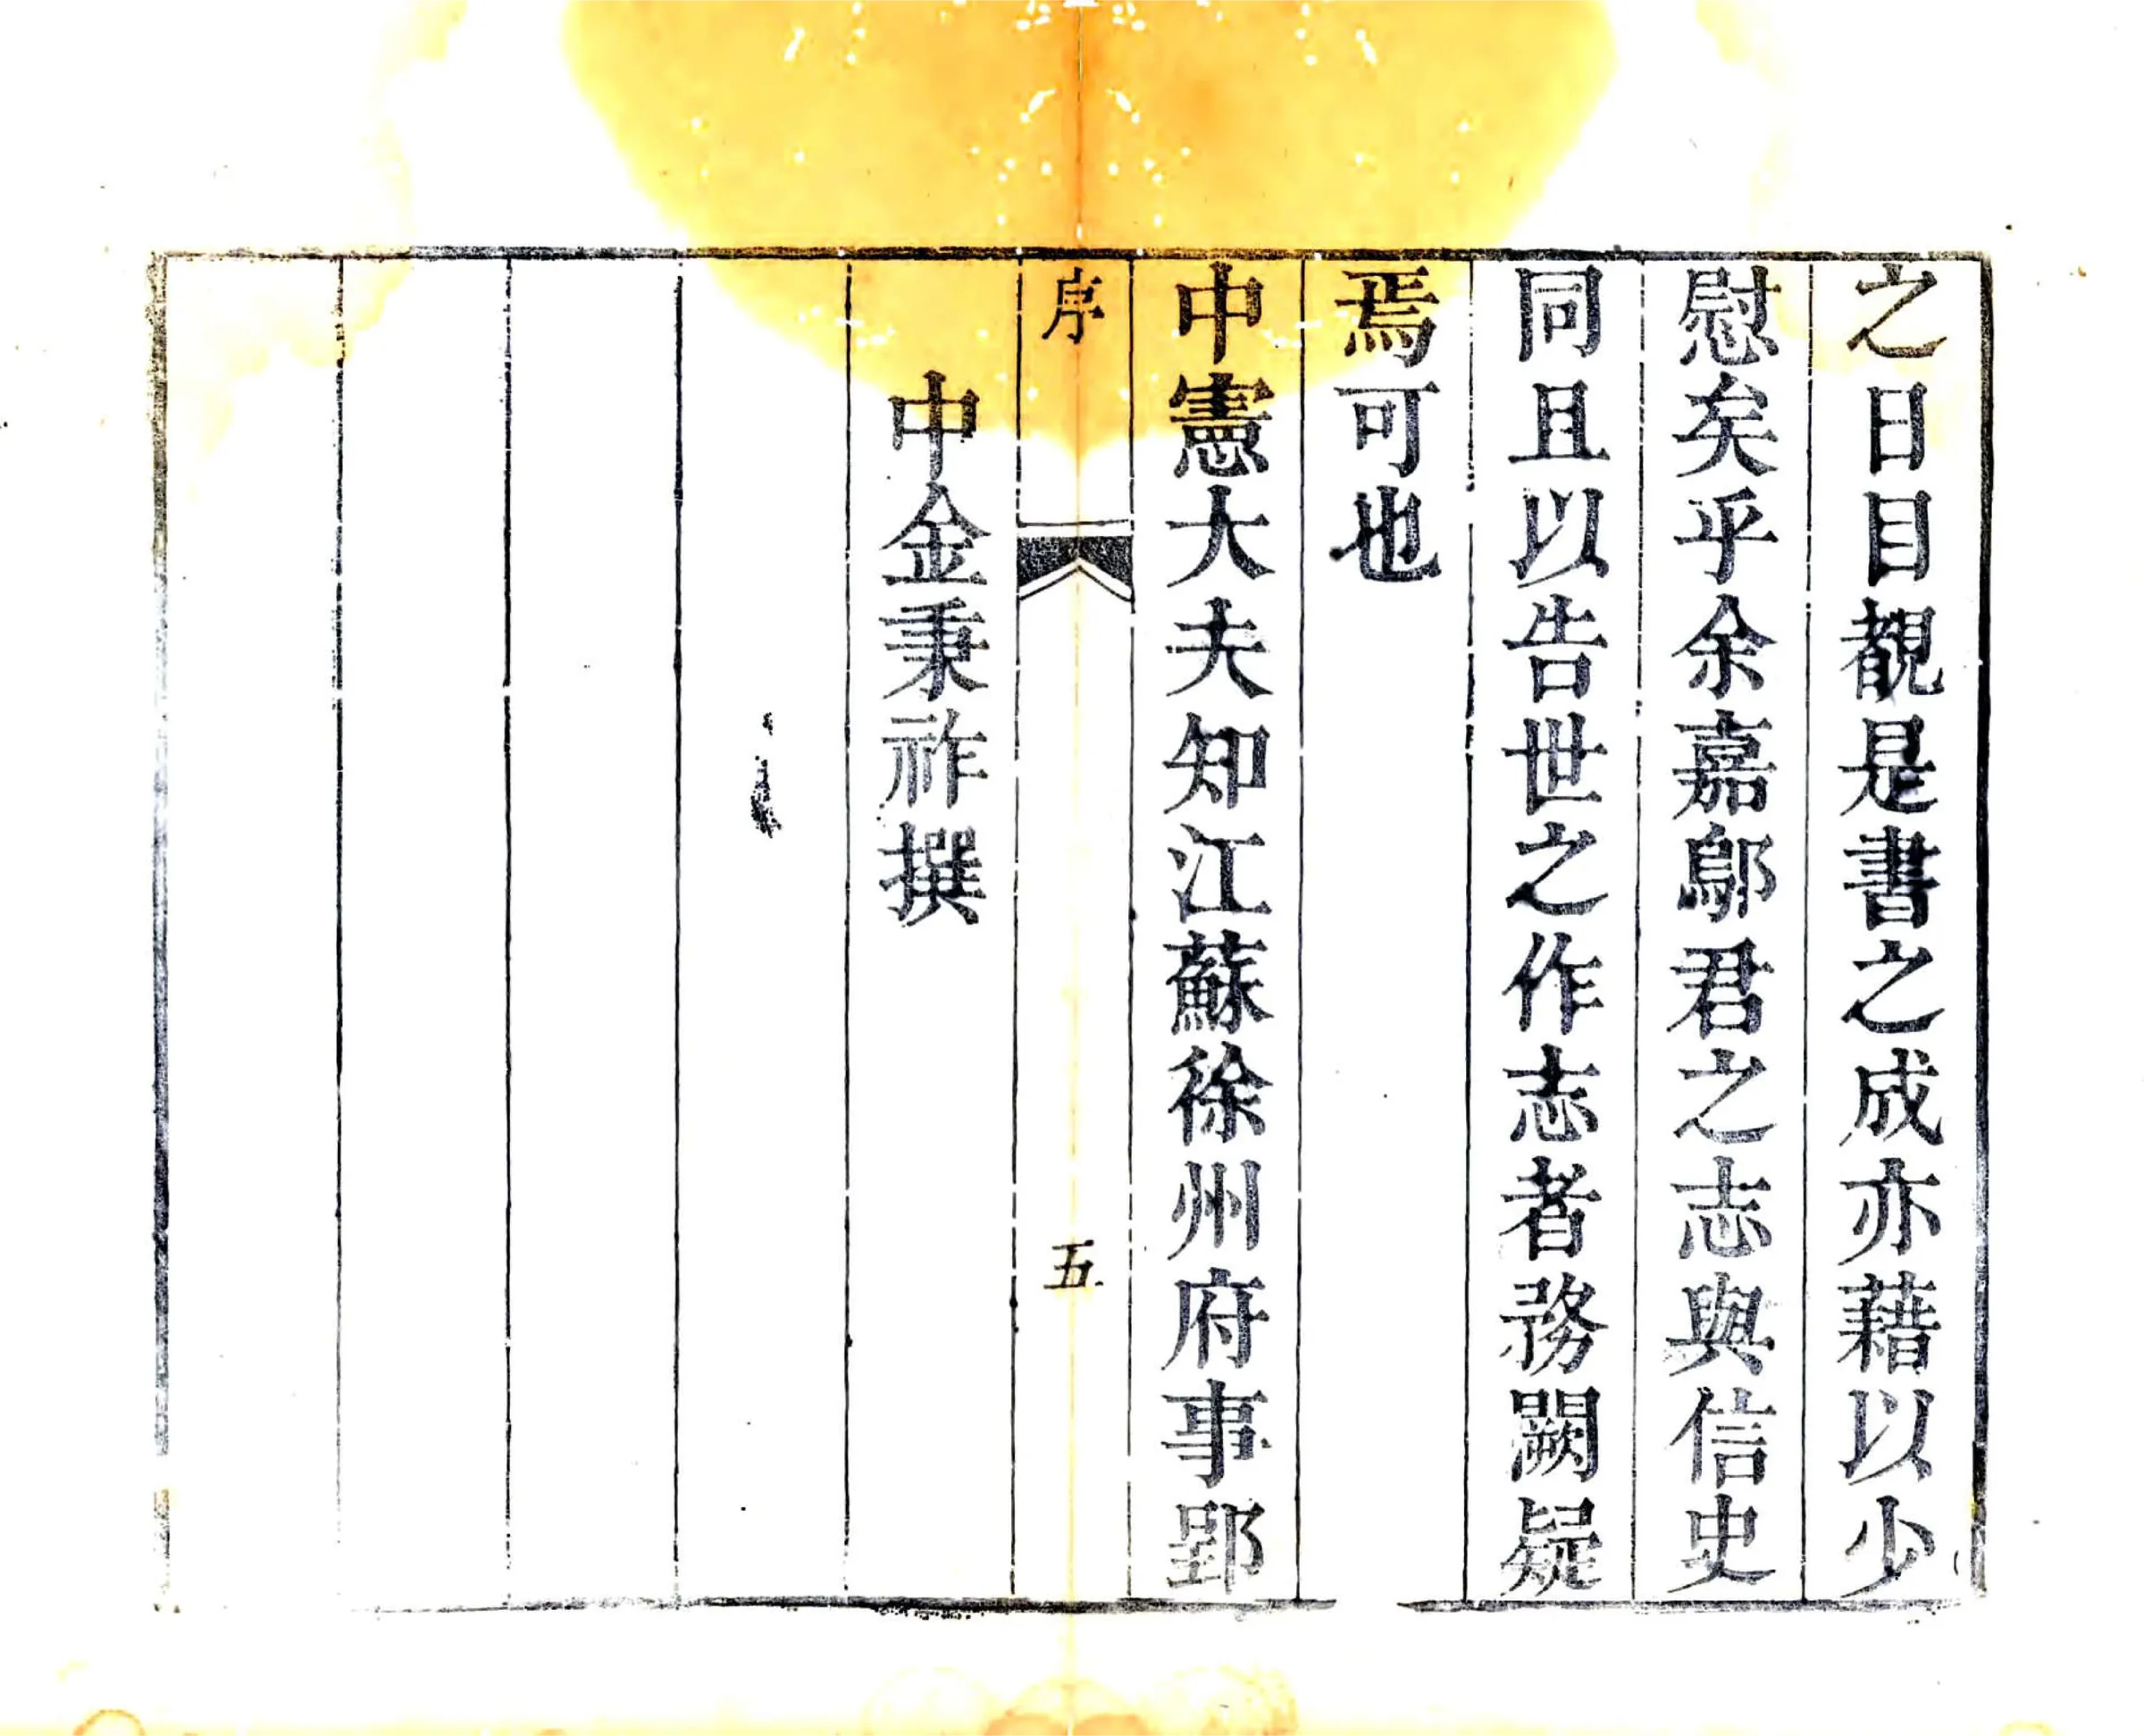 之日目覩是書之成亦藉以少
慰矣乎余嘉鄔君之志與信史
同且以告世之作志者務闕疑
焉可也
中憲大夫知江蘇徐州府事郢
序
五
中金秉祚撰